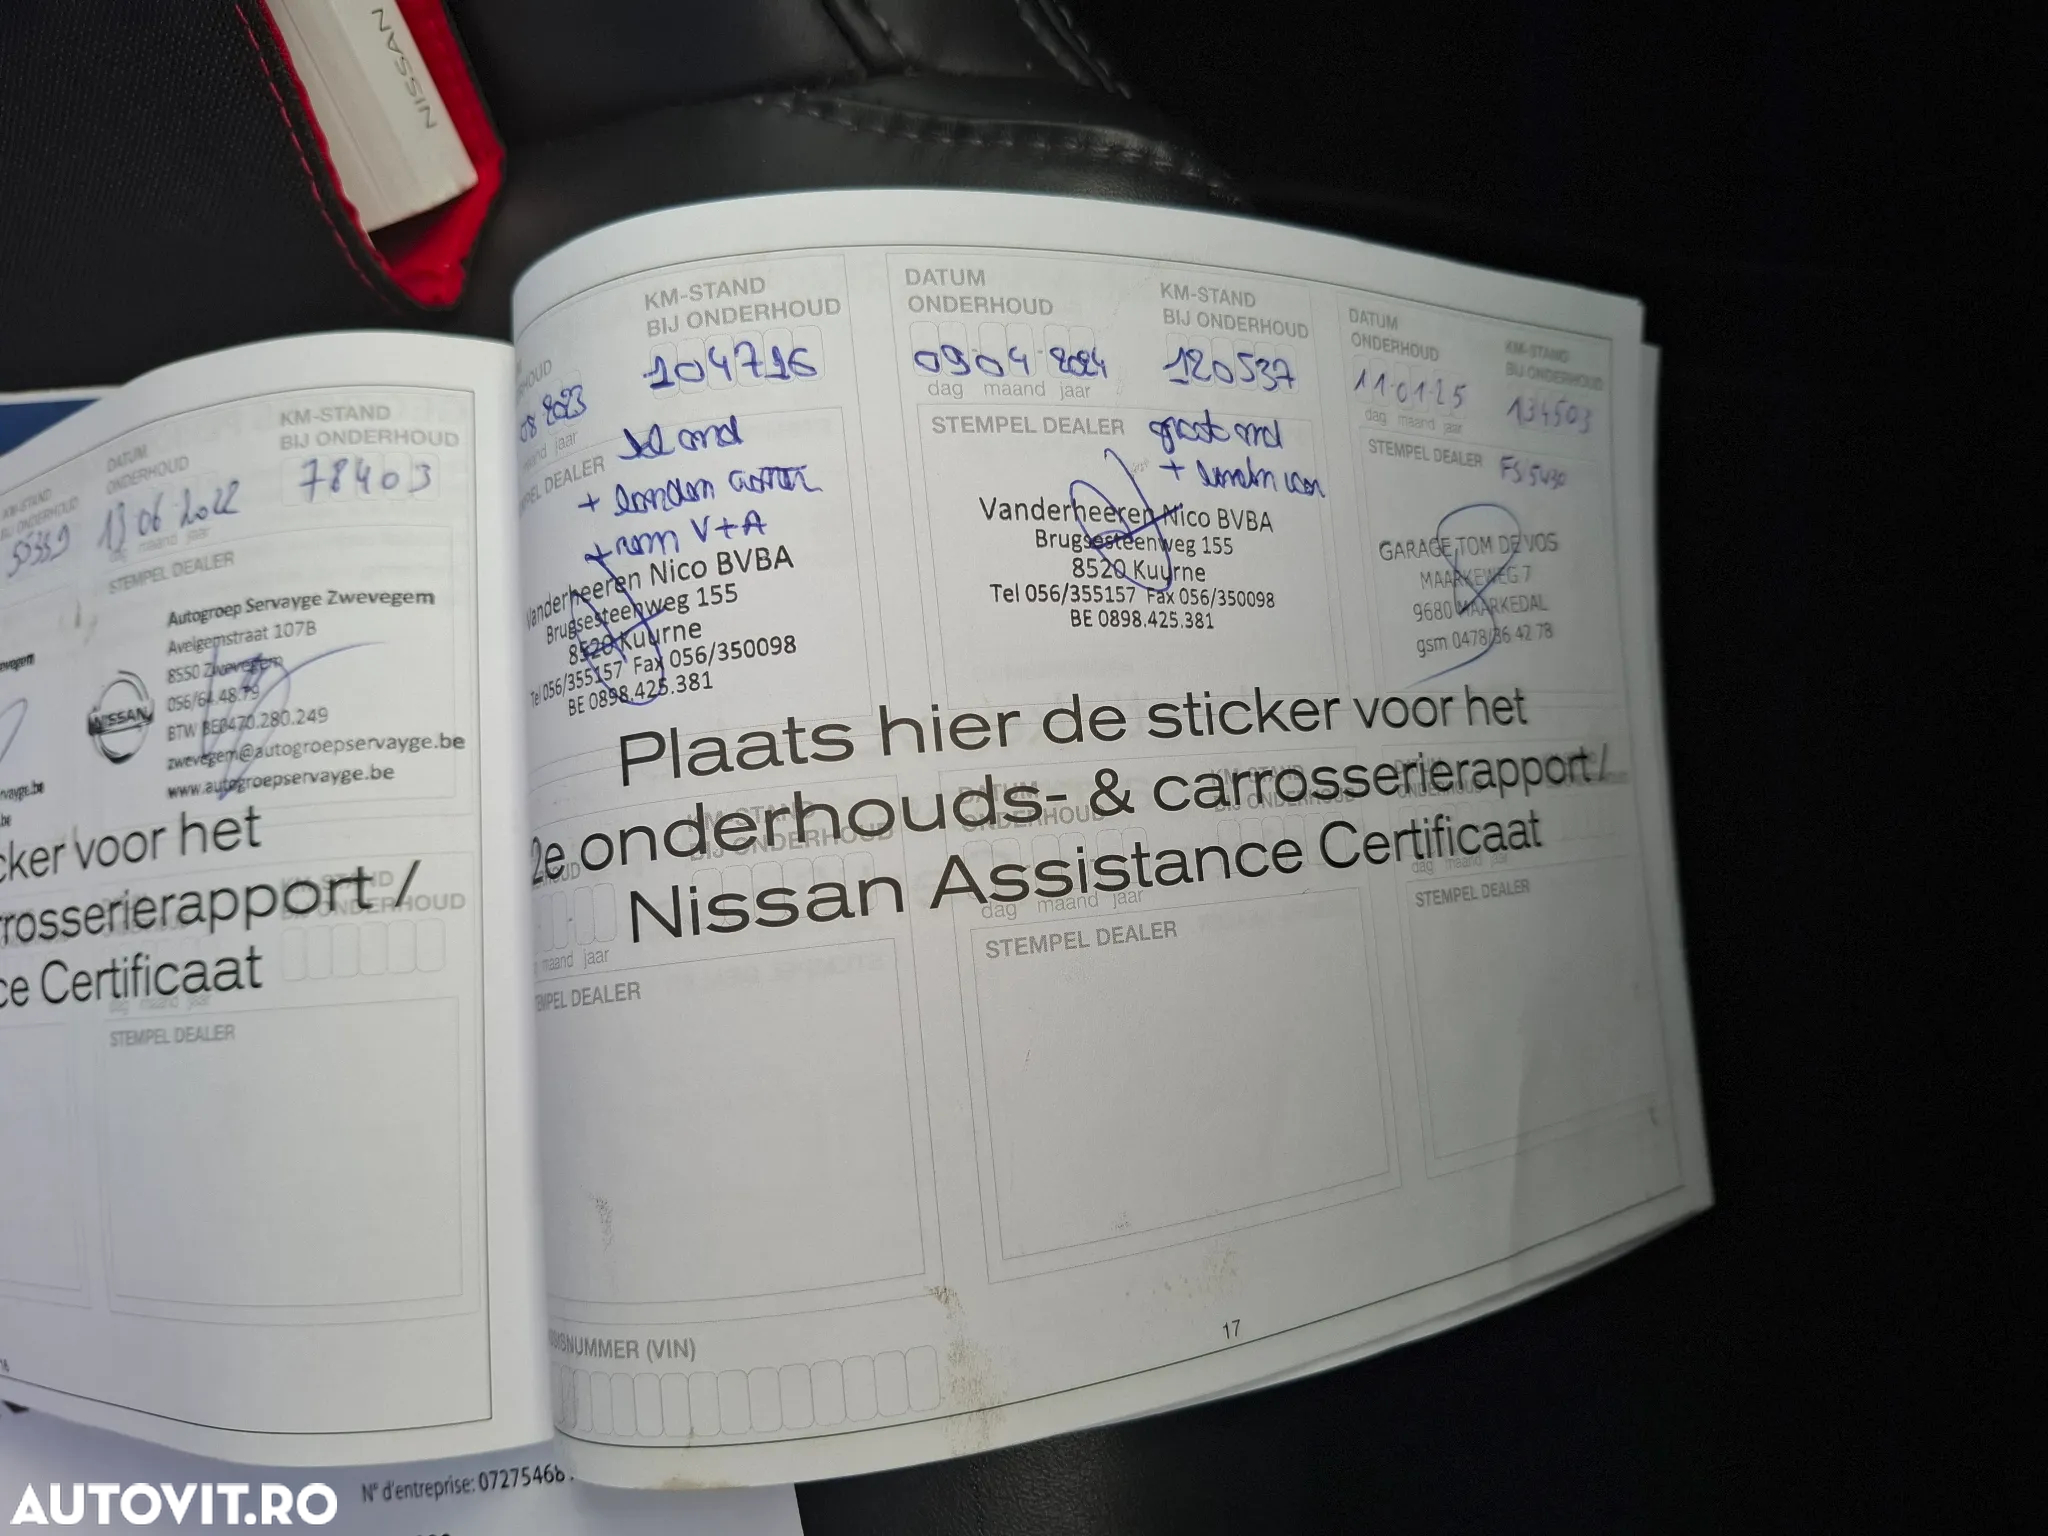 NISSAN
KM-STAND
55339
DATUM
ONDERHOUD
KM-STAND
BIJ ONDERHOUD
13 06 2022
78403
dag maand jaar
STEMPEL DEALER
NISSAN
Autogroep Servayge Zwevegem
Avelgemstraat 107B
8550 Zwevegem
056/64.48.79
BTW BE0470.280.249
zwevegem@autogroepservayge.be
www.autogroepservayge.be
cker voor het
rrosserierapport /
ce Certificaat
KM-STAND
BIJ ONDERHOUD
dag maand jaar
STEMPEL DEALER
KM-STAND
BIJ ONDERHOUD
08 2023
104716
jaar
DEALER
+ rem V+A
Vanderheeren Nico BVBA
Brugsesteenweg 155
8520 Kuurne
Tel 056/355157 Fax 056/350098
BE 0898.425.381
DATUM
ONDERHOUD
KM-STAND
BIJ ONDERHOUD
09 04 2024
120537
dag maand jaar
STEMPEL DEALER
groot ond
Vanderheeren Nico BVBA
Brugsesteenweg 155
8520 Kuurne
Tel 056/355157 Fax 056/350098
BE 0898.425.381
DATUM
ONDERHOUD
KM-STAND
BIJ ONDERHOUD
11.01.25
134503
dag maand jaar
STEMPEL DEALER
GARAGE TOM DE VOS
MAARKEWEG 7
9680 MAARKEDAL
gsm 0478/36 42 78
Plaats hier de sticker voor het
2e onderhouds- & carrosserierapport /
Nissan Assistance Certificaat
KM-STAND
BIJ ONDERHOUD
maand jaar
STEMPEL DEALER
DATUM
ONDERHOUD
KM-STAND
BIJ ONDERHOUD
dag maand jaar
STEMPEL DEALER
dag maand jaar
STEMPEL DEALER
SISNUMMER (VIN)
17
16
N° d'entreprise: 07275468
AUTOVIT.RO